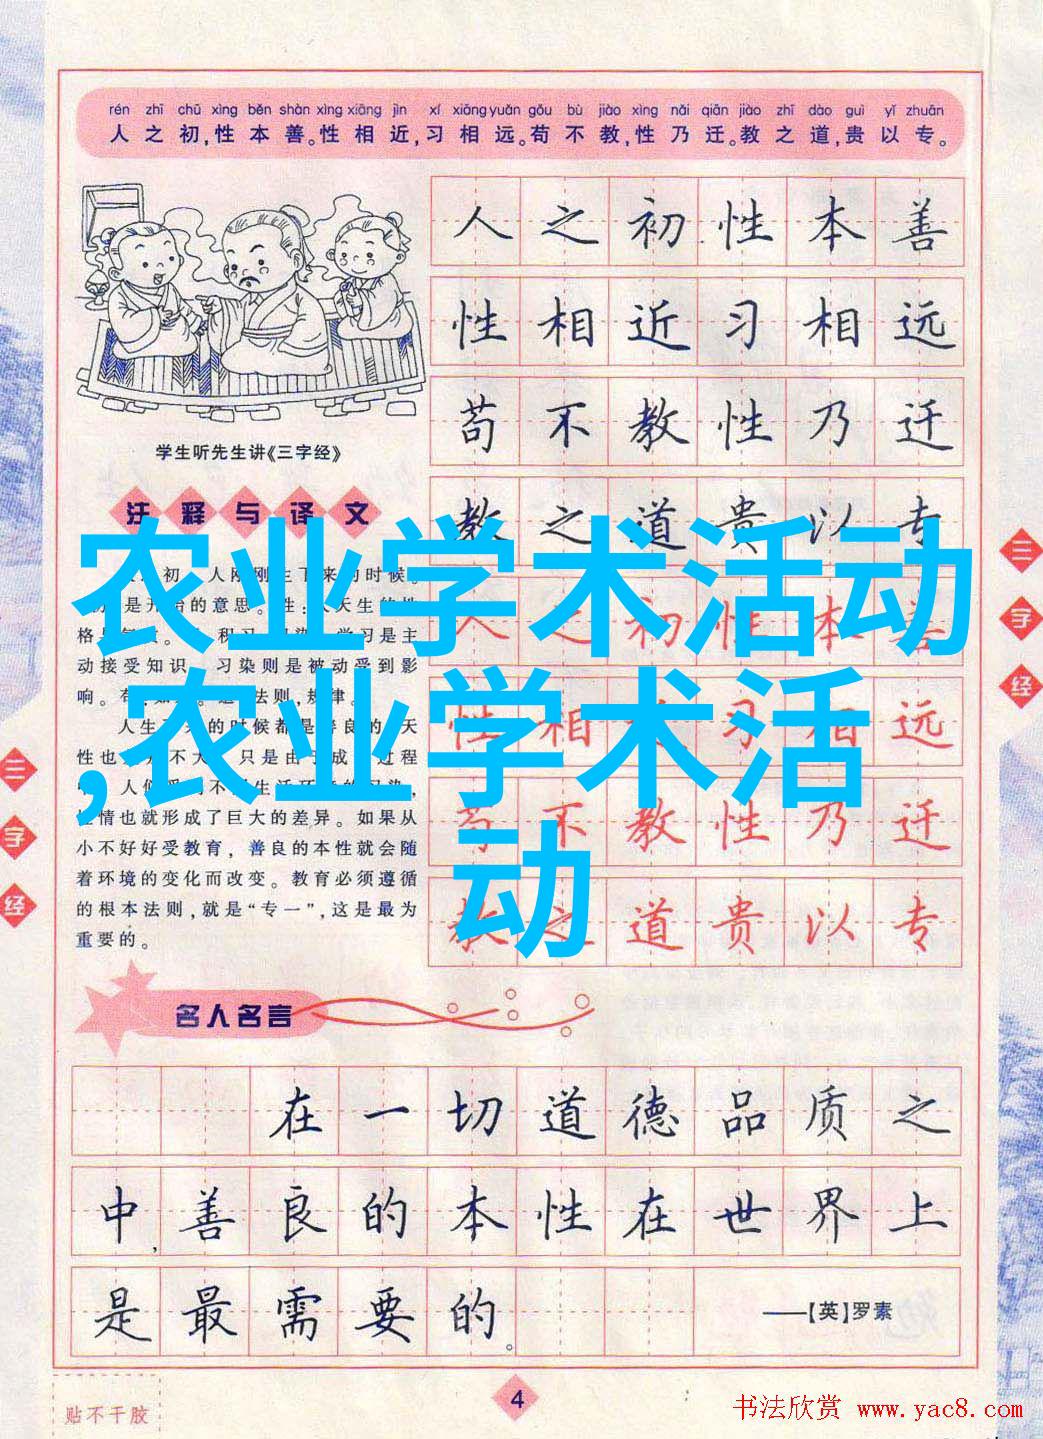 rén zhī chū xìng běn shàn xìng xiāng jìn xí xiāng yuǎn gǒu bù jiào xìng nǎi qiān jiào zhī dào guì yǐ zhuān
人之初,性本善。性相近,习相远。苟不教,性乃迁。教之道,贵以专。
人之初性本善
性相近习相远
苟不教性乃迁
教之道贵以专
人之初性本善
性相近习相远
苟不教性乃迁
教之道贵以专
学生听先生讲《三字经》
注释与译文
初 人刚刚生下来的时候。
是开始的意思。性:人天生的性
动接受知识。习染则是被动受到影
响。
性也
情也就形成了巨大的差异。如果从
小不好好受教育,善良的本性就会随
着环境的变化而改变。教育必须遵循
的根本法则,就是“专一”,这是最为
重要的。
农业学术活动
,农业学术活
动
三字经
三字经
名人名言
在一切道德品质之
中,善良的本性在世界上
是最需要的。
——【英】罗素
4
贴不干胶
书法欣赏 www.yac8.com